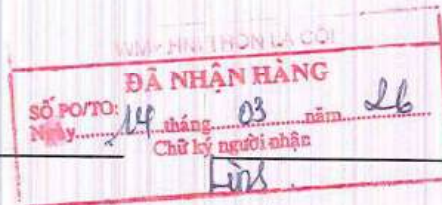 WM+ HNI THÔN LA CÔI
ĐÃ NHẬN HÀNG
SỐ PO/TO:
Ngày 14 tháng 03 năm 26
Chữ ký người nhận